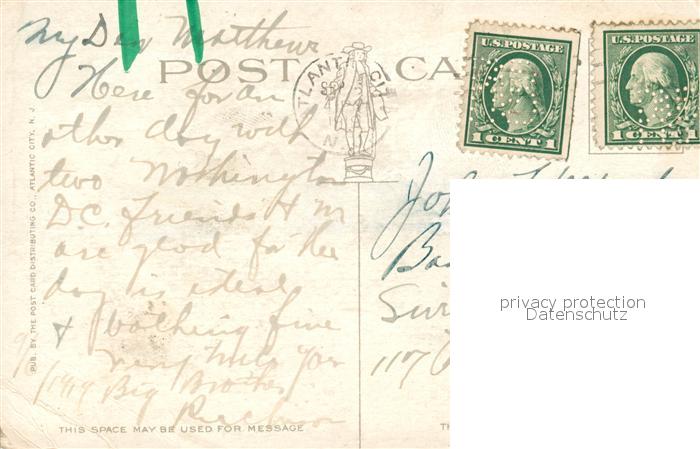 My Dear Matthews
POST CA
Here for an
other day with
two Washington
D.C. friends H M
are glad for the
day is ideal
& bathing fine
very truly your
1919 Big Brother
THIS SPACE MAY BE USED FOR MESSAGE
PUB. BY THE POST CARD DISTRIBUTING CO., ATLANTIC CITY, N. J.
ATLANTIC CITY
N
U.S. POSTAGE
1 CENT 1
U.S. POSTAGE
1 CENT 1
John
Ba
1107
TH
privacy protection
Datenschutz